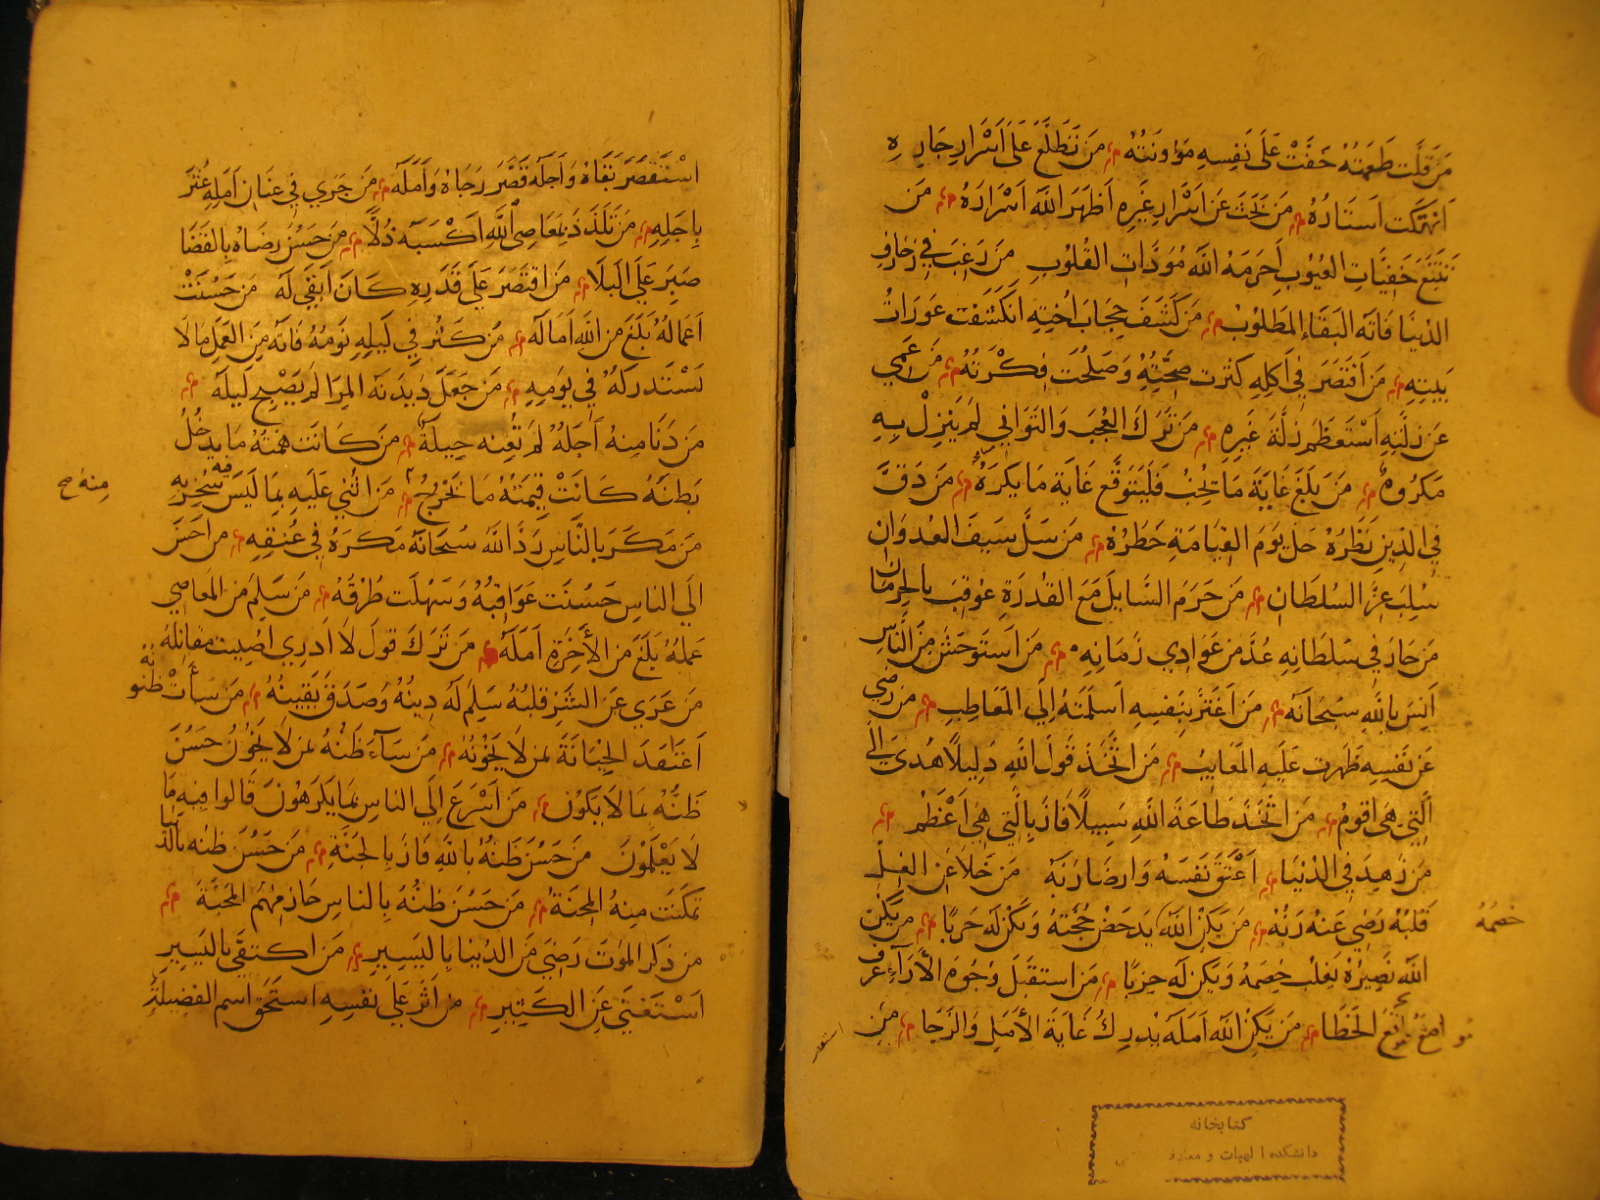 مَن قلّت طعمته خفّت على نفسه مؤونته من تطلّع على أسرار جاره
انهتكت استاره من بحث عن اسرار غيره اظهر الله اسراره من
تتبّع خفيّات العيوب احرمه الله مودّات القلوب من رغب في زخارف
الدنيا فاته البقاء المطلوب من كشف حجاب اخيه انكشفت عورات
بيته من اقتصر في اكله كثرت صحّته وصلحت فكرته من عمي
عن زلّته استعظم زلّة غيره من ترك العجب والتواني لم ينزل به
مكروه من بلغ غاية ما يحبّ فليتوقّع غاية ما يكره من دقّ
في الدين نظره جلّ يوم القيامة خطره من سلّ سيف العدوان
سلب عزّ السلطان من حرم السّايل مع القدرة عوقب بالحرمان
من جار في سلطانه عدّ من عوادي زمانه من استوحش من النّاس
انس بالله سبحانه من اغترّ بنفسه اسلمته الى المعاطب من رضي
عن نفسه ظهرت عليه المعايب من اتّخذ قول الله دليلاً هدى الى
الّتي هي اقوم من اتّخذ طاعة الله سبيلاً فاز بالّتي هي اعظم
من زهد في الدنيا اعتق نفسه وارضا ربّه من خلا عن الغلّ
قلبه رضي عنه ربّه من يكن الله يدحض حجّته ويكن له حربًا من يكن
خصمه
الله نصيره يغلب خصمه ويكن له حزبًا من استقبل وجوه الآراء عرف
مواقع الخطا من يكن الله امله يدرك غاية الامل والرّجا من
استقصر بقاه واجله قصر رجاه وامله من جرى في عنان امله عثر
باجله من تلذذ بمعاصى الله اكسبه ذلاًّ من حسن رضاه بالقضا
صبر على البلا من اقتصر على قدره كان ابقى له من حسنت
اعماله بلغ من الله اماله من كثر في ليله نومه فاته من العمل مالا
يستدركه في يومه من جعل ديدنه المرا لم يصبح ليله
من دنا منه اجله لم تغنه حيلة من كانت همّته ما يدخل
بطنه كانت قيمته ما يخرج من اثني عليه بما ليس فيه سخر به
منه صح
من مكر بالنّاس ردّ الله سبحانه مكره في عنقه من احسن
الى الناس حسنت عواقبه وسهلت طرقه من سلم من المعاصي
عمله بلغ من الآخرة امله من ترك قول لا ادري اصيبت مقاتله
من عري عن الشرّ قلبه سلم له دينه وصدق يقينه من سأت ظنونه
اعتقد الخيانة بمن لا يخونه من سآء ظنّه بمن لا يخون حسن
ظنّه بما لا يكون من اسرع الى الناس بما يكرهون قالوا فيه ما
لا يعلمون من حسن ظنّه بالله فاز بالجنّة من حسن ظنه بالدنيا
تمكّنت منه المحنة من حسن ظنّه بالناس حاز منهم المحبّة
من ذكر الموت رضي من الدنيا باليسير من اكتفى باليسير
استغنى عن الكثير من اثر على نفسه استحق اسم الفضيلة
كتابخانه
دانشكده الهيات و معارف